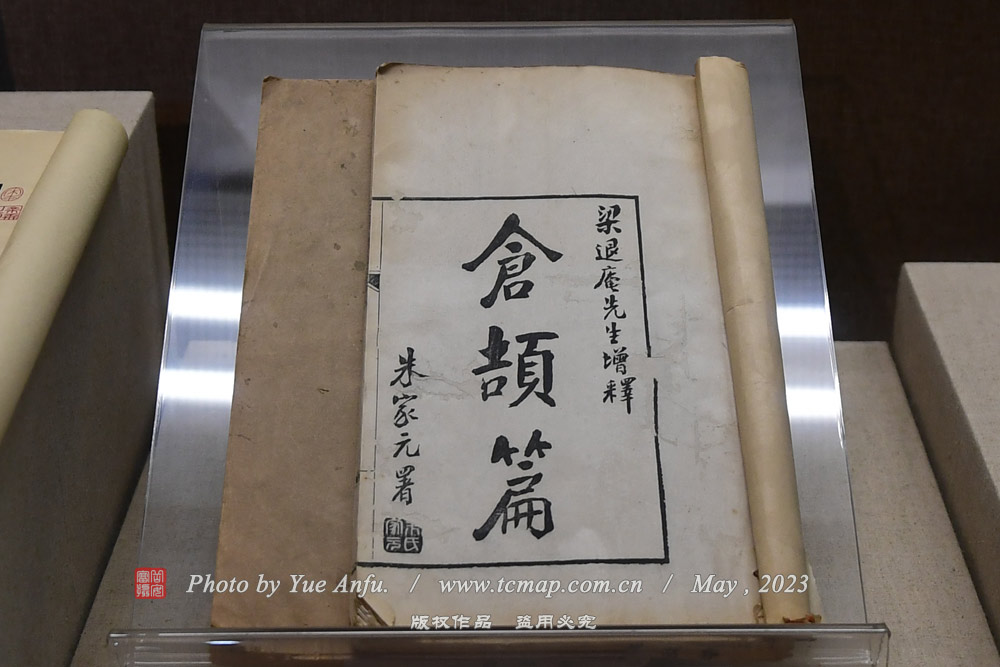 梁退庵先生增釋
倉頡篇
朱家元署
Photo by Yue Anfu. / www.tcmap.com.cn / May , 2023
版权作品 盗用必究